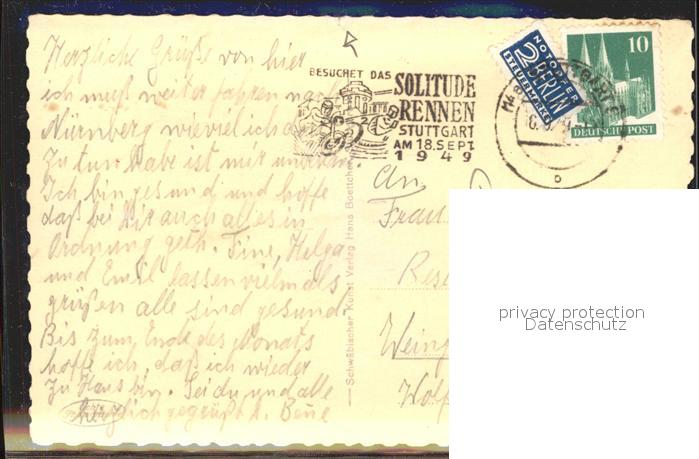 Herzliche Grüße von hier
ich muß weiter fahren nach
Nürnberg wieviel ich da
Zu tun habe ist mir unbekannt.
Ich bin gesund und hoffe
daß bei Dir auch alles in
Ordnung geth. Fine, Helga
und Emil lassen vielmals
grüßen alle sind gesund.
Bis zum Ende des Monats
hoffe ich, daß ich wieder
zu Haus bin. Sei du und alle
herzlich gegrüßt
BESUCHET DAS
SOLITUDE
RENNEN
STUTTGART
AM 18. SEPT.
1949
NOTOPFER
2 BERLIN
STEUERMARKE
10
DEUTSCHE POST
Schwäbischer Kunst Verlag Hans Boettcher
An
Frau
Rese
Wein
Wolf
privacy protection
Datenschutz